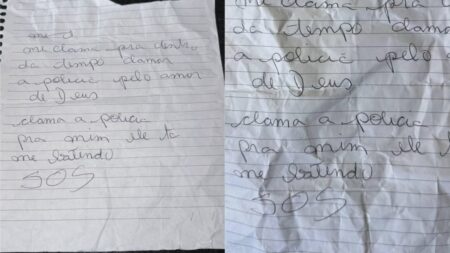 me d
me clama pra dentro
da tempo clamar
a policia pelo amor
de Deus
clama a policia
pra mim ele ta
me batendo
SOS
me clama pra
da tempo clamar
a policia pelo a
de Deus
clama a policia
pra mim ele t
me batendo
SOS